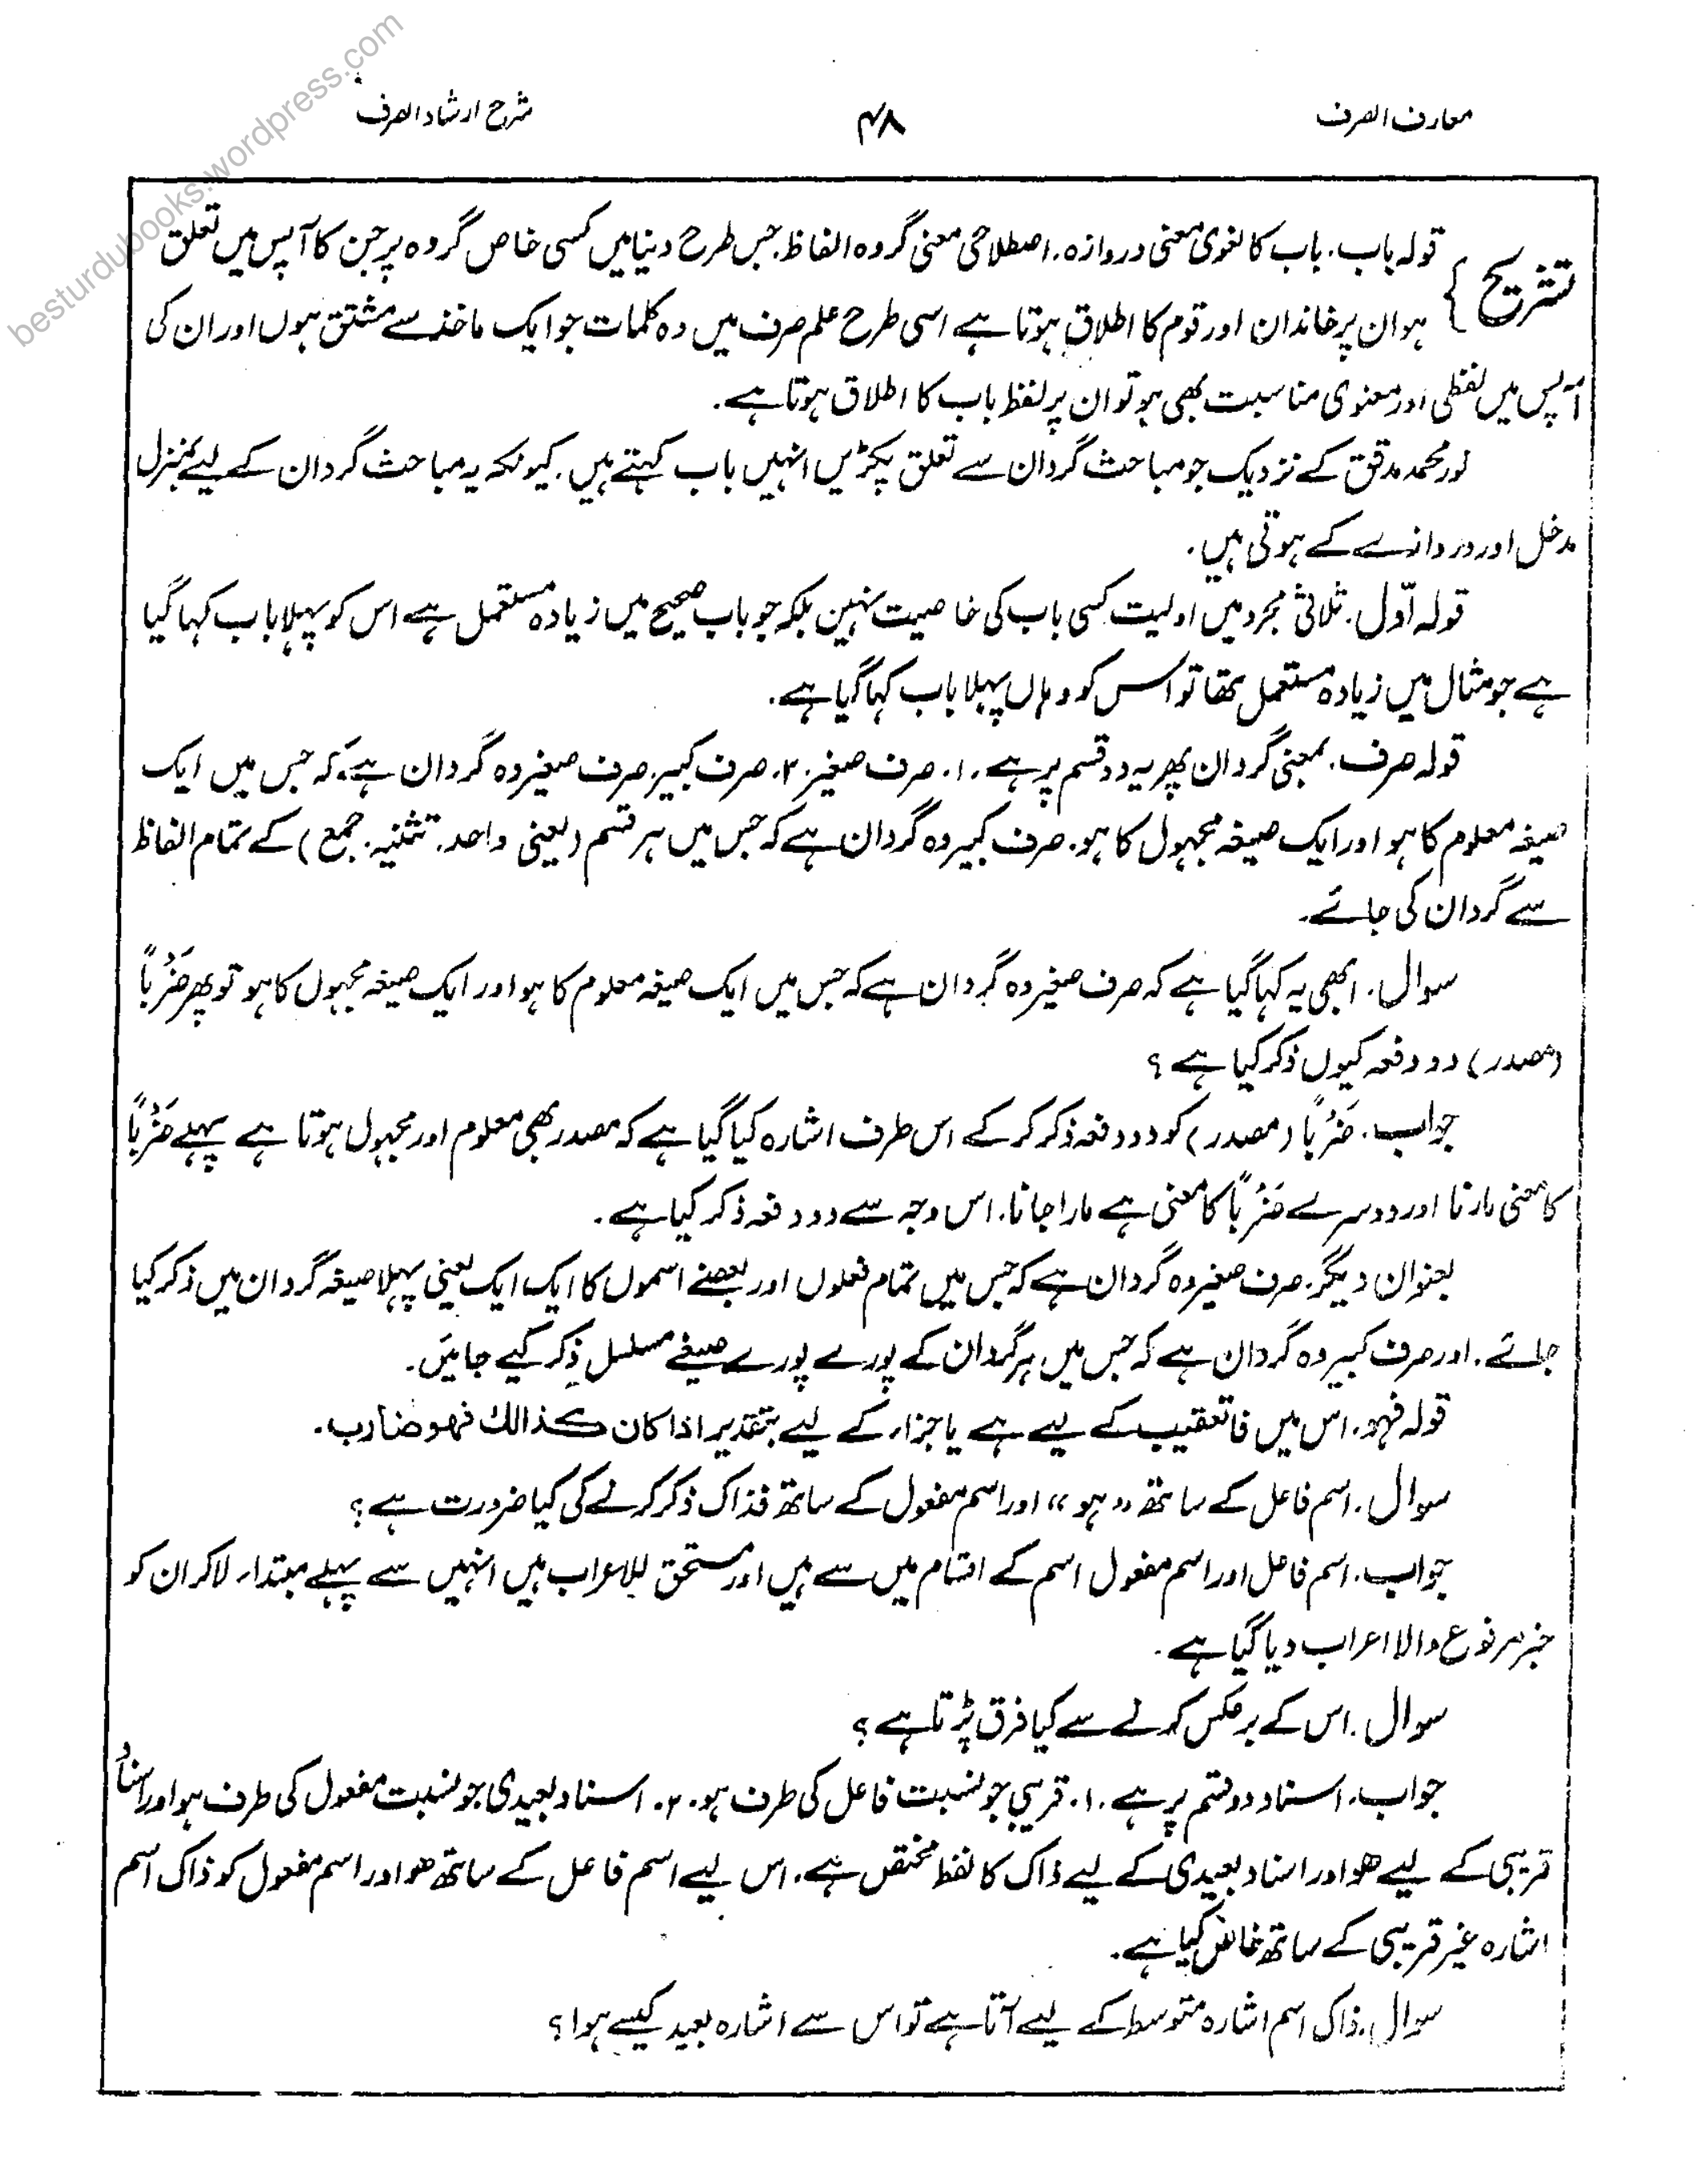 معارف الصرف ۴۸ شرح ارشاد الصرف
besturdubooks.wordpress.com
تشریح } قولہ باب. باب کا لغوی معنی دروازہ. اصطلاحی معنی گروہ الفاظ. جس طرح دنیا میں کسی خاص گروہ پر جن کا آپس میں تعلق
ہو ان پر خاندان اور قوم کا اطلاق ہوتا ہے اسی طرح علم صرف میں وہ کلمات جو ایک ماخذ سے مشتق ہوں اور ان کی
آپس میں لفظی اور معنوی مناسبت بھی ہو تو ان پر لفظ باب کا اطلاق ہوتا ہے.
نور محمد مدقق کے نزدیک جو مباحث گردان سے تعلق پکڑیں انہیں باب کہتے ہیں. کیونکہ یہ مباحث گردان کے لیے بمنزل
مدخل اور دروازے کے ہوتی ہیں.
قولہ اوّل. ثلاثی مجرد میں اولیت کسی باب کی خاصیت نہیں بلکہ جو باب صحیح میں زیادہ مستعمل ہے اس کو پہلا باب کہا گیا
ہے جو مثال میں زیادہ مستعمل تھا تو اس کو وہاں پہلا باب کہا گیا ہے.
قولہ صرف. بمعنی گردان پھر یہ دو قسم پر ہے. ۱. صرف صغیر. ۲. صرف کبیر. صرف صغیر وہ گردان ہے کہ جس میں ایک
صیغہ معلوم کا ہو اور ایک صیغہ مجہول کا ہو. صرف کبیر وہ گردان ہے کہ جس میں ہر قسم (یعنی واحد. تثنیہ. جمع) کے تمام الفاظ
سے گردان کی جائے.
سوال. ابھی یہ کہا گیا ہے کہ صرف صغیر وہ گردان ہے کہ جس میں ایک صیغہ معلوم کا ہو اور ایک صیغہ مجہول کا ہو تو پھر ضَرْبًا
(مصدر) دو دفعہ کیوں ذکر کیا ہے ؟
جواب. ضَرْبًا (مصدر) کو دو دفعہ ذکر کر کے اس طرف اشارہ کیا گیا ہے کہ مصدر بھی معلوم اور مجہول ہوتا ہے پہلے ضَرْبًا
کا معنی مارنا اور دوسرے ضَرْبًا کا معنی ہے مارا جانا. اس وجہ سے دو دفعہ ذکر کیا ہے.
بعنوان دیگر. صرف صغیر وہ گردان ہے کہ جس میں تمام فعلوں اور بعضے اسموں کا ایک ایک یعنی پہلا صیغہ گردان میں ذکر کیا
جائے. اور صرف کبیر وہ گردان ہے کہ جس میں ہر گردان کے پورے پورے صیغے مسلسل ذکر کیے جائیں.
قولہ فہو. اس میں فا تعقیب کے لیے ہے یا جزاء کے لیے بتقدیر اذا کان کذالك فهو ضارب.
سوال. اسم فاعل کے ساتھ "ہو" اور اسم مفعول کے ساتھ فذاک ذکر کرنے کی کیا ضرورت ہے ؟
جواب. اسم فاعل اور اسم مفعول اسم کے اقسام میں سے ہیں اور مستحق للاعراب ہیں انہیں سے پہلے مبتداء لا کر ان کو
خبر مرفوع والا اعراب دیا گیا ہے.
سوال. اس کے برعکس کرنے سے کیا فرق پڑتا ہے ؟
جواب. اسناد دو قسم پر ہے. ۱. قریبی جو نسبت فاعل کی طرف ہو. ۲. اسناد بعیدی جو نسبت مفعول کی طرف ہو اور اسناد
قریبی کے لیے ھو اور اسناد بعیدی کے لیے ذاک کا لفظ مختص ہے. اس لیے اسم فاعل کے ساتھ ھو اور اسم مفعول کو ذاک اسم
اشارہ غیر قریبی کے ساتھ خاص کیا ہے.
سوال. ذاک اسم اشارہ متوسط کے لیے آتا ہے تو اس سے اشارہ بعید کیسے ہوا ؟